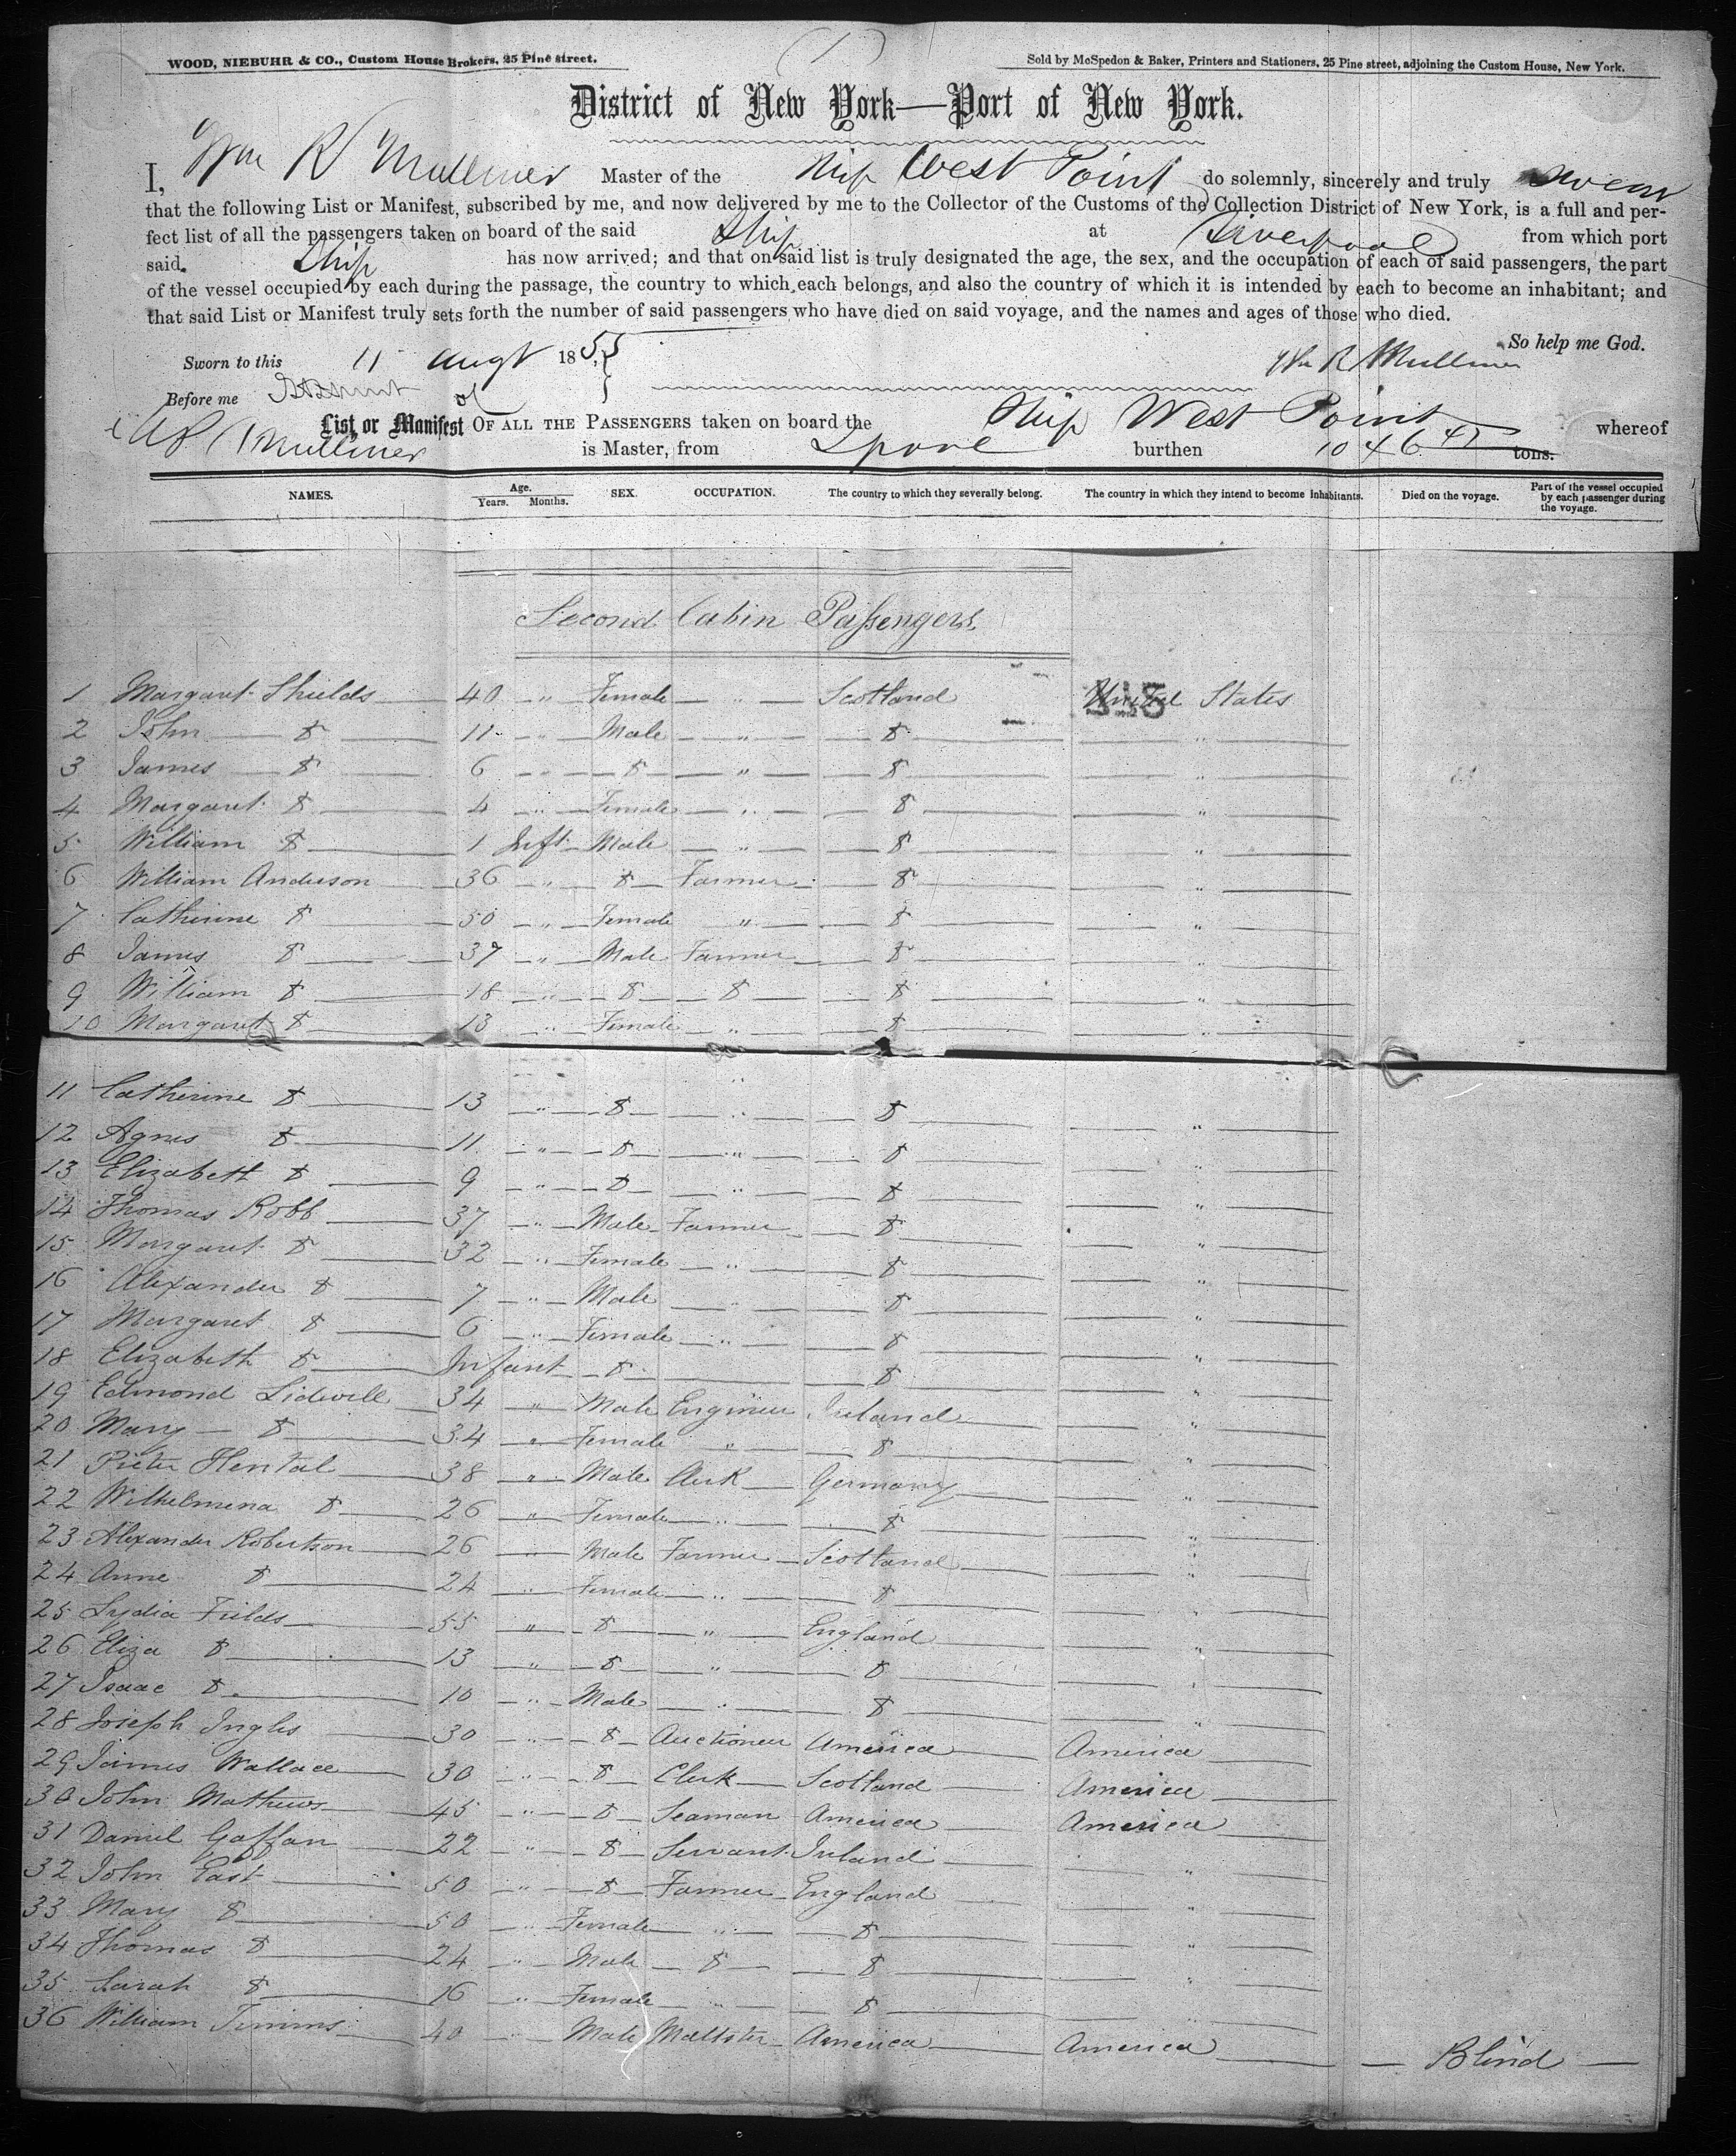 (1)
WOOD, NIEBUHR & CO., Custom House Brokers, 25 Pine street.
Sold by McSpedon & Baker, Printers and Stationers, 25 Pine street, adjoining the Custom House, New York.
District of New York—Port of New York.
I, Wm R Mulliner Master of the Ship West Point do solemnly, sincerely and truly swear
that the following List or Manifest, subscribed by me, and now delivered by me to the Collector of the Customs of the Collection District of New York, is a full and per-
fect list of all the passengers taken on board of the said Ship at Liverpool from which port
said Ship has now arrived; and that on said list is truly designated the age, the sex, and the occupation of each of said passengers, the part
of the vessel occupied by each during the passage, the country to which each belongs, and also the country of which it is intended by each to become an inhabitant; and
that said List or Manifest truly sets forth the number of said passengers who have died on said voyage, and the names and ages of those who died.
So help me God.
Sworn to this 11 Augt 1855 Wm R Mulliner
Before me
List or Manifest OF ALL THE PASSENGERS taken on board the Ship West Point whereof
Mulliner is Master, from Lpool burthen 1046 47 tons.
NAMES. Age. Years. Months. SEX. OCCUPATION. The country to which they severally belong. The country in which they intend to become inhabitants. Died on the voyage. Part of the vessel occupied by each passenger during the voyage.
Second Cabin Passengers
1 Margaret Shields 40 " Female " Scotland United States
2 John Do 11 " Male " Do "
3 James Do 6 " Do " Do "
4 Margaret Do 4 " Female " Do "
5 William Do 1 Inft Male " Do "
6 William Anderson 36 " Do Farmer Do "
7 Catherine Do 50 " Female " Do "
8 James Do 37 " Male Farmer Do "
9 William Do 18 " Do Do Do "
10 Margaret Do 13 " Female " Do "
11 Catherine Do 13 " Do " Do "
12 Agnes Do 11 " Do " Do "
13 Elizabeth Do 9 " Do " Do "
14 Thomas Robb 37 " Male Farmer Do "
15 Margaret Do 32 " Female " Do "
16 Alexander Do 7 " Male " Do "
17 Margaret Do 6 " Female " Do "
18 Elizabeth Do Infant Do Do "
19 Edmond Lidwill 34 " Male Engineer Ireland "
20 Mary Do 34 " Female " Do "
21 Pieter Hental 38 " Male Clerk Germany "
22 Wilhelmena Do 26 " Female " Do "
23 Alexander Robertson 26 " Male Farmer Scotland "
24 Anne Do 24 " Female " Do "
25 Lydia Fields 55 " Do " England "
26 Eliza Do 13 " Do " Do "
27 Isaac Do 10 " Male " Do "
28 Joseph Inglis 30 " Do Auctioneer America America
29 James Wallace 30 " Do Clerk Scotland America
30 John Mathews 45 " Do Seaman America America
31 Daniel Gaffan 22 " Do Servant Ireland "
32 John East 50 " Do Farmer England "
33 Mary Do 50 " Female " Do "
34 Thomas Do 24 " Male Do Do "
35 Sarah Do 16 " Female " Do "
36 William Timms 40 " Male Maltster America America Blind